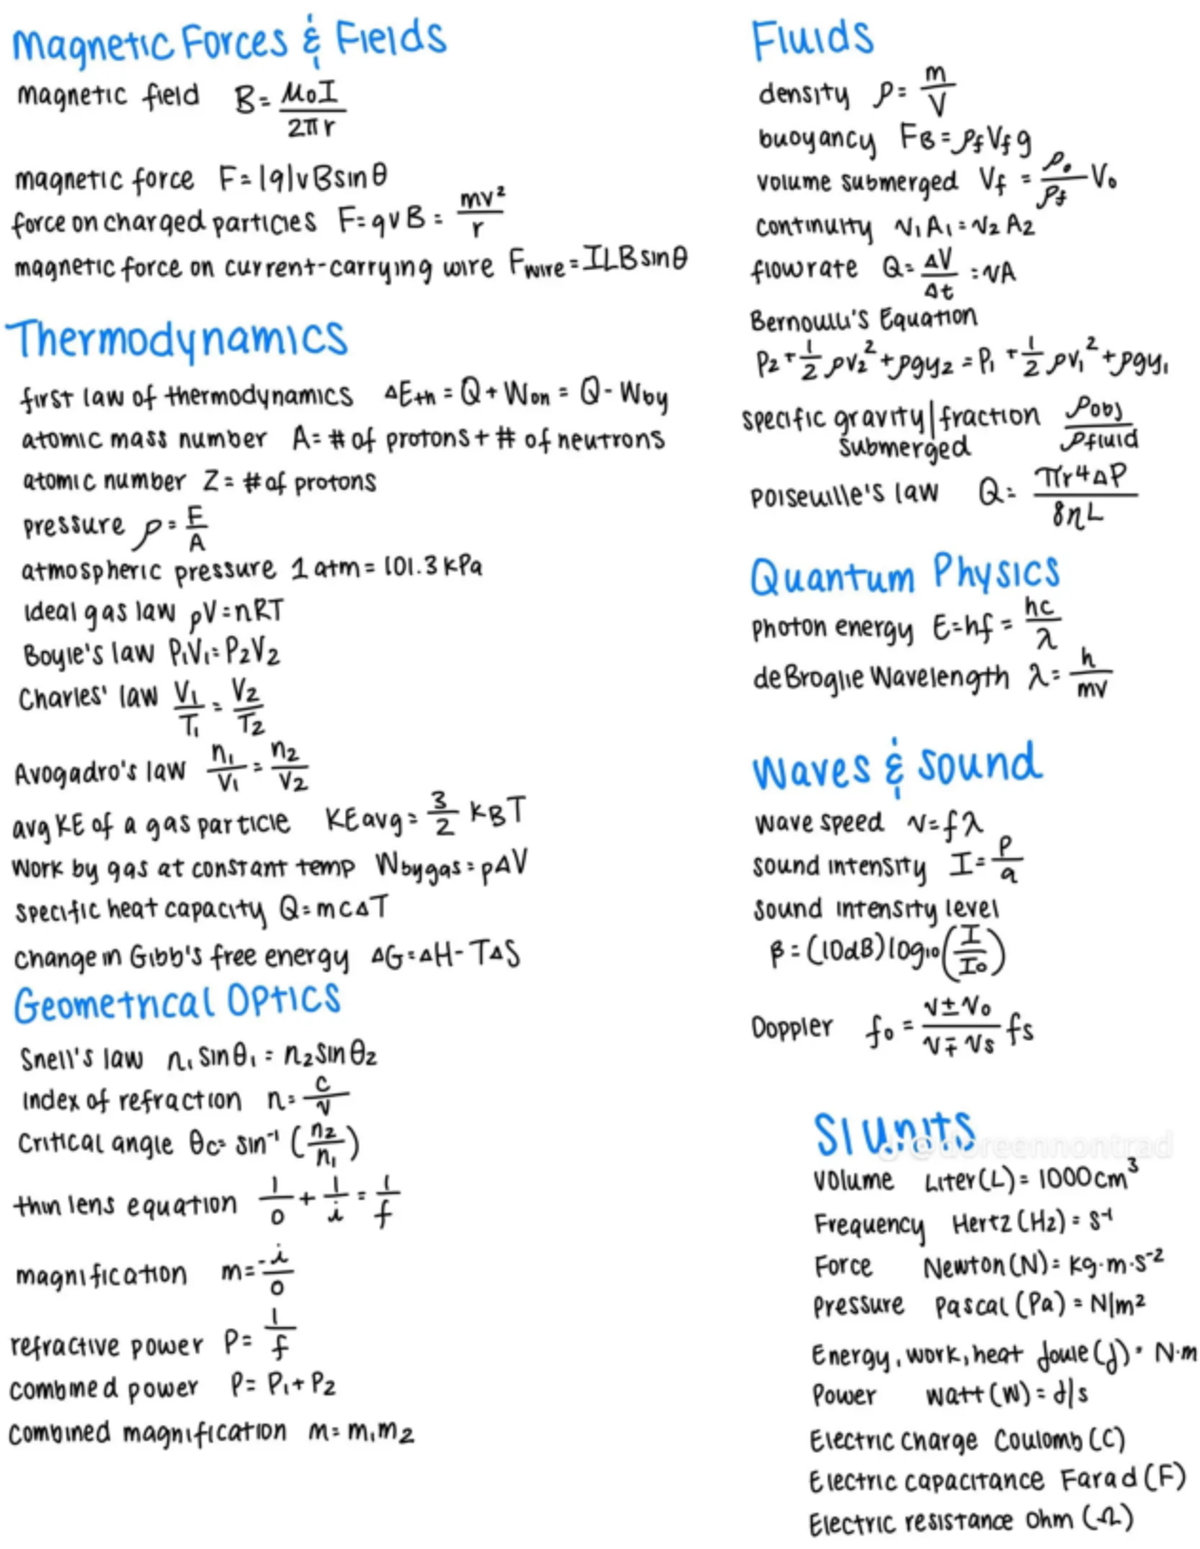 Magnetic Forces & Fields
magnetic field B = μ₀I / 2πr
magnetic force F = |q|vBsinθ
force on charged particles F = qvB = mv² / r
magnetic force on current-carrying wire Fwire = ILBsinθ
Thermodynamics
first law of thermodynamics ΔEth = Q + Won = Q - Wby
atomic mass number A = # of protons + # of neutrons
atomic number Z = # of protons
pressure p = F / A
atmospheric pressure 1 atm = 101.3 kPa
ideal gas law pV = nRT
Boyle's law P₁V₁ = P₂V₂
Charles' law V₁ / T₁ = V₂ / T₂
Avogadro's law n₁ / V₁ = n₂ / V₂
avg KE of a gas particle KEavg = 3/2 kBT
Work by gas at constant temp Wbygas = pΔV
specific heat capacity Q = mcΔT
change in Gibb's free energy ΔG = ΔH - TΔS
Geometrical Optics
Snell's law n₁ sinθ₁ = n₂ sinθ₂
Index of refraction n = c / v
Critical angle θc = sin⁻¹ (n₂ / n₁)
thin lens equation 1/o + 1/i = 1/f
magnification m = -i / o
refractive power P = 1 / f
combined power P = P₁ + P₂
combined magnification m = m₁m₂
Fluids
density ρ = m / V
buoyancy FB = ρfVfg
volume submerged Vf = ρo / ρf Vo
continuity v₁A₁ = v₂A₂
flow rate Q = ΔV / Δt = vA
Bernoulli's Equation
P₂ + 1/2 ρv₂² + ρgy₂ = P₁ + 1/2 ρv₁² + ρgy₁
specific gravity | fraction ρobj / ρfluid
submerged
Poiseuille's law Q = πr⁴ΔP / 8ηL
Quantum Physics
Photon energy E = hf = hc / λ
deBroglie Wavelength λ = h / mv
Waves & Sound
wave speed v = fλ
sound intensity I = P / a
sound intensity level
β = (10dB) log₁₀ (I / I₀)
Doppler fo = v ± vo / v ∓ vs fs
SI Units
@doreennontrad
Volume Liter (L) = 1000 cm³
Frequency Hertz (Hz) = s⁻¹
Force Newton (N) = kg·m·s⁻²
Pressure Pascal (Pa) = N|m²
Energy, work, heat Joule (J) = N·m
Power watt (W) = J|s
Electric Charge Coulomb (C)
Electric capacitance Farad (F)
Electric resistance Ohm (Ω)